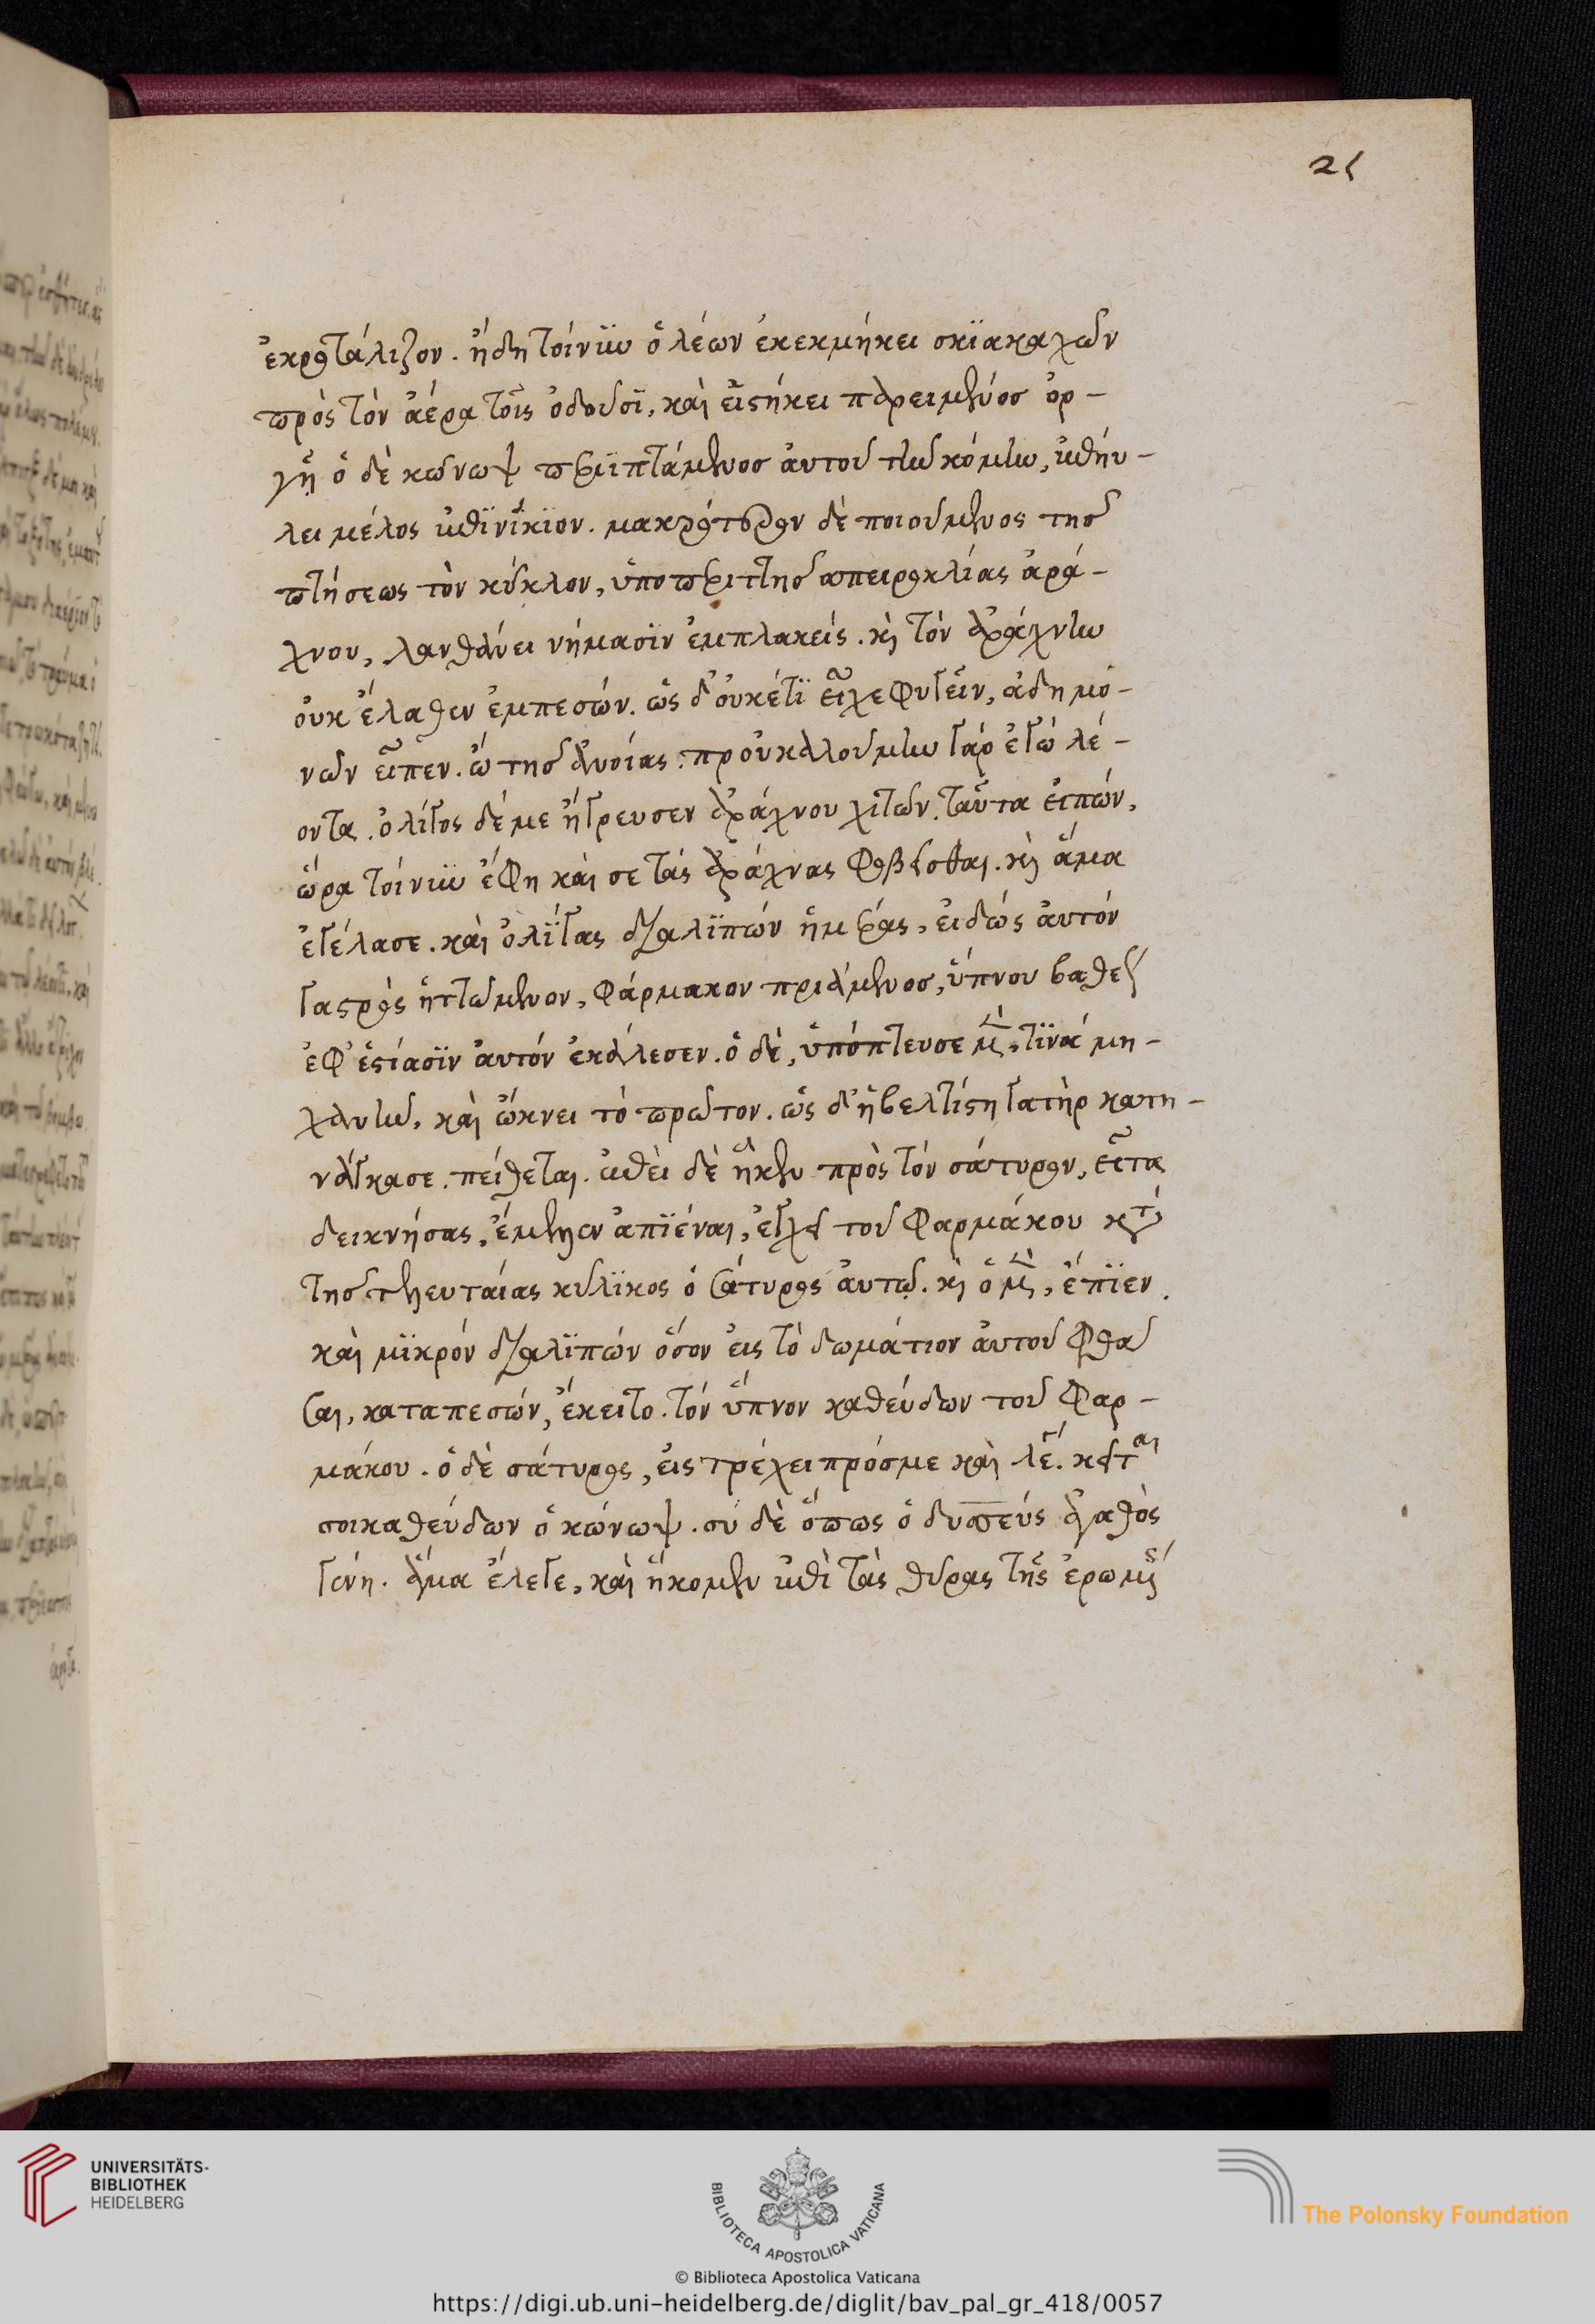 21
ἐκροτάλιζον. ἤδη τοίνϋν ὁ λέων ἐκεκμήκει σκϊαμαχῶν
πρὸς τὸν ἀέρα τοῖς ὀδοῦσϊ, καὶ εἱστήκει παρειμένος ὀρ-
γῇ ὁ δὲ κώνωψ περϊϊπτάμενος ἀυτοῦ τὴν κόμην, ἐπήυ-
λει μέλος ἐπϊνΐκϊον. μακρότερον δὲ ποιούμενος τῆς
πτήσεως τὸν κύκλον, ὑπο περιττῆς ἀπειροκλίας ἀρά-
χνου, λανθάνει νήμασϊν ἐμπλακείς. κὶ τὸν ἀράχνην
οὐκ ἔλαθεν ἐμπεσών. ὡς δ' οὐκέτϊ εἶχε φυγεῖν, ἀδημο-
νῶν εἶπεν. ὢ τῆς ἀνοίας. προὐκαλούμην γάρ ἐγὼ λέ-
οντα. ὀλίγος δέ με ἤγρευσεν ἀράχνου χιτών. ταῦτα εἰπών,
ὥρα τοίνυν ἔφη καὶ σε τάς ἀράχνας φοβεῖσθαι. κὶ ἅμα
ἐγέλασε. καὶ ὀλΐγας διαλϊπών ἡμέρας, εἰδώς ἀυτόν
γαστρὸς ἡττώμενον, φάρμακον πριάμενος, ὕπνου βαθέος
ἐφ' ἑστίασϊν ἀυτόν ἐκάλεσεν. ὁ δὲ, ὑπόπτευσε μὲν, τϊνά μη-
χανὴν, καὶ ὤκνει τὸ πρῶτον. ὡς δ' ἡ βελτίστη γαστὴρ κατη-
νάγκασε. πείθεται. ἐπεὶ δὲ ἧκεν πρὸς τόν σάτυρον, εἶτα
δειπνήσας, ἔμελλεν ἀπϊέναι, ἐγχεῖ τοῦ φαρμάκου κατά
τῆς τελευταίας κύλϊκος ὁ σάτυρος ἀυτῷ. κὶ ὁ μὲν, ἔπϊεν.
καὶ μϊκρόν διαλϊπών ὅσον ἐις τὸ δωμάτιον ἀυτοῦ φθά
σαι, καταπεσών, ἔκειτο. τόν ὕπνον καθεύδων τοῦ φαρ-
μάκου. ὁ δὲ σάτυρος, ἐις τρέχει πρός με καὶ λέγει. κεῖται
σοι καθεύδων ὁ κώνωψ. σύ δὲ ὅπως ὀδυσσεύς ἀγαθὸς
γένῃ. ἅμα ἔλεγε, καὶ ἥκομεν ἐπὶ τὰς θύρας τῆς ἐρωμένης
UNIVERSITÄTS-
BIBLIOTHEK
HEIDELBERG
BIBLIOTECA APOSTOLICA VATICANA
The Polonsky Foundation
© Biblioteca Apostolica Vaticana
https://digi.ub.uni-heidelberg.de/diglit/bav_pal_gr_418/0057